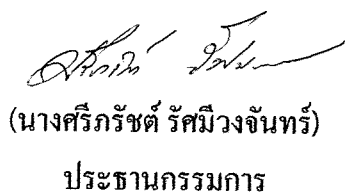 (นางศรีภรัชต์ รัศมีวงจันทร์)
ประธานกรรมการ